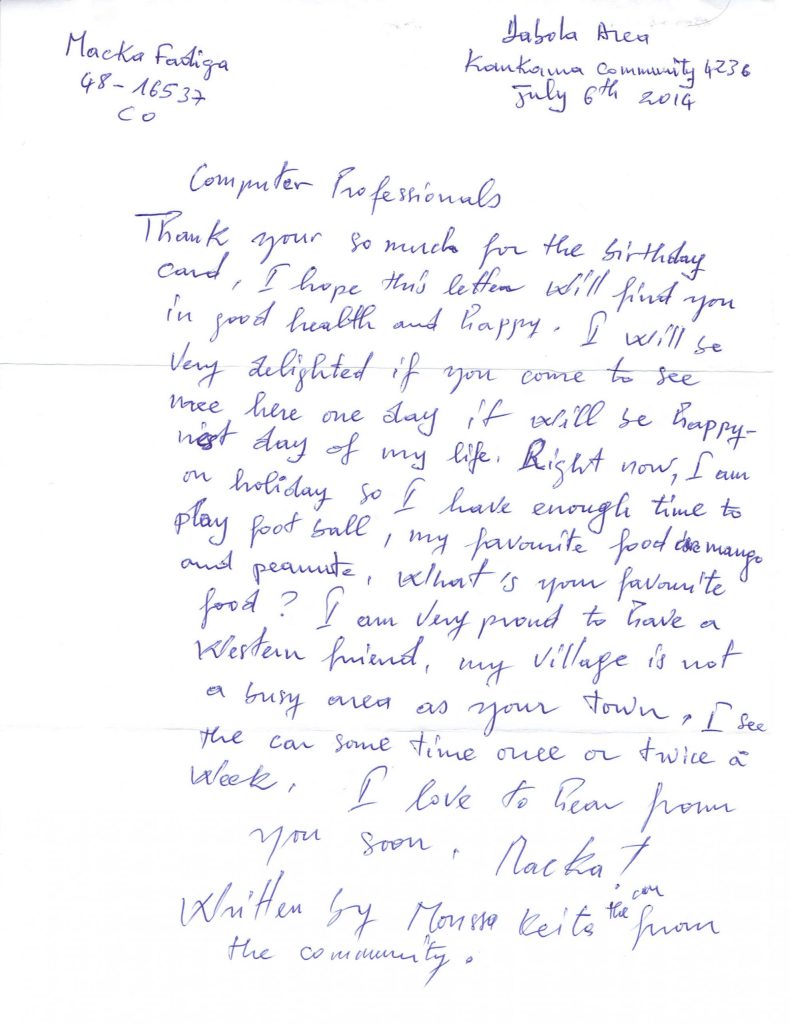 Macka Fadiga
48-16537
CO
Dabola Area
Kankama community 4236
July 6th 2014
Computer Professionals
Thank your so much for the birthday
card, I hope this letter will find you
in good health and happy. I will be
very delighted if you come to see
mee here one day it will be happy-
nest day of my life. Right now, I am
on holiday so I have enough time to
play foot ball, my favourite food are mango
and peanute, What's your favourite
food? I am very proud to have a
Western friend, my village is not
a busy area as your town, I see
the car some time once or twice a
week. I love to hear from
you soon. Macka!
Written by Moussa Keita the from
the community.